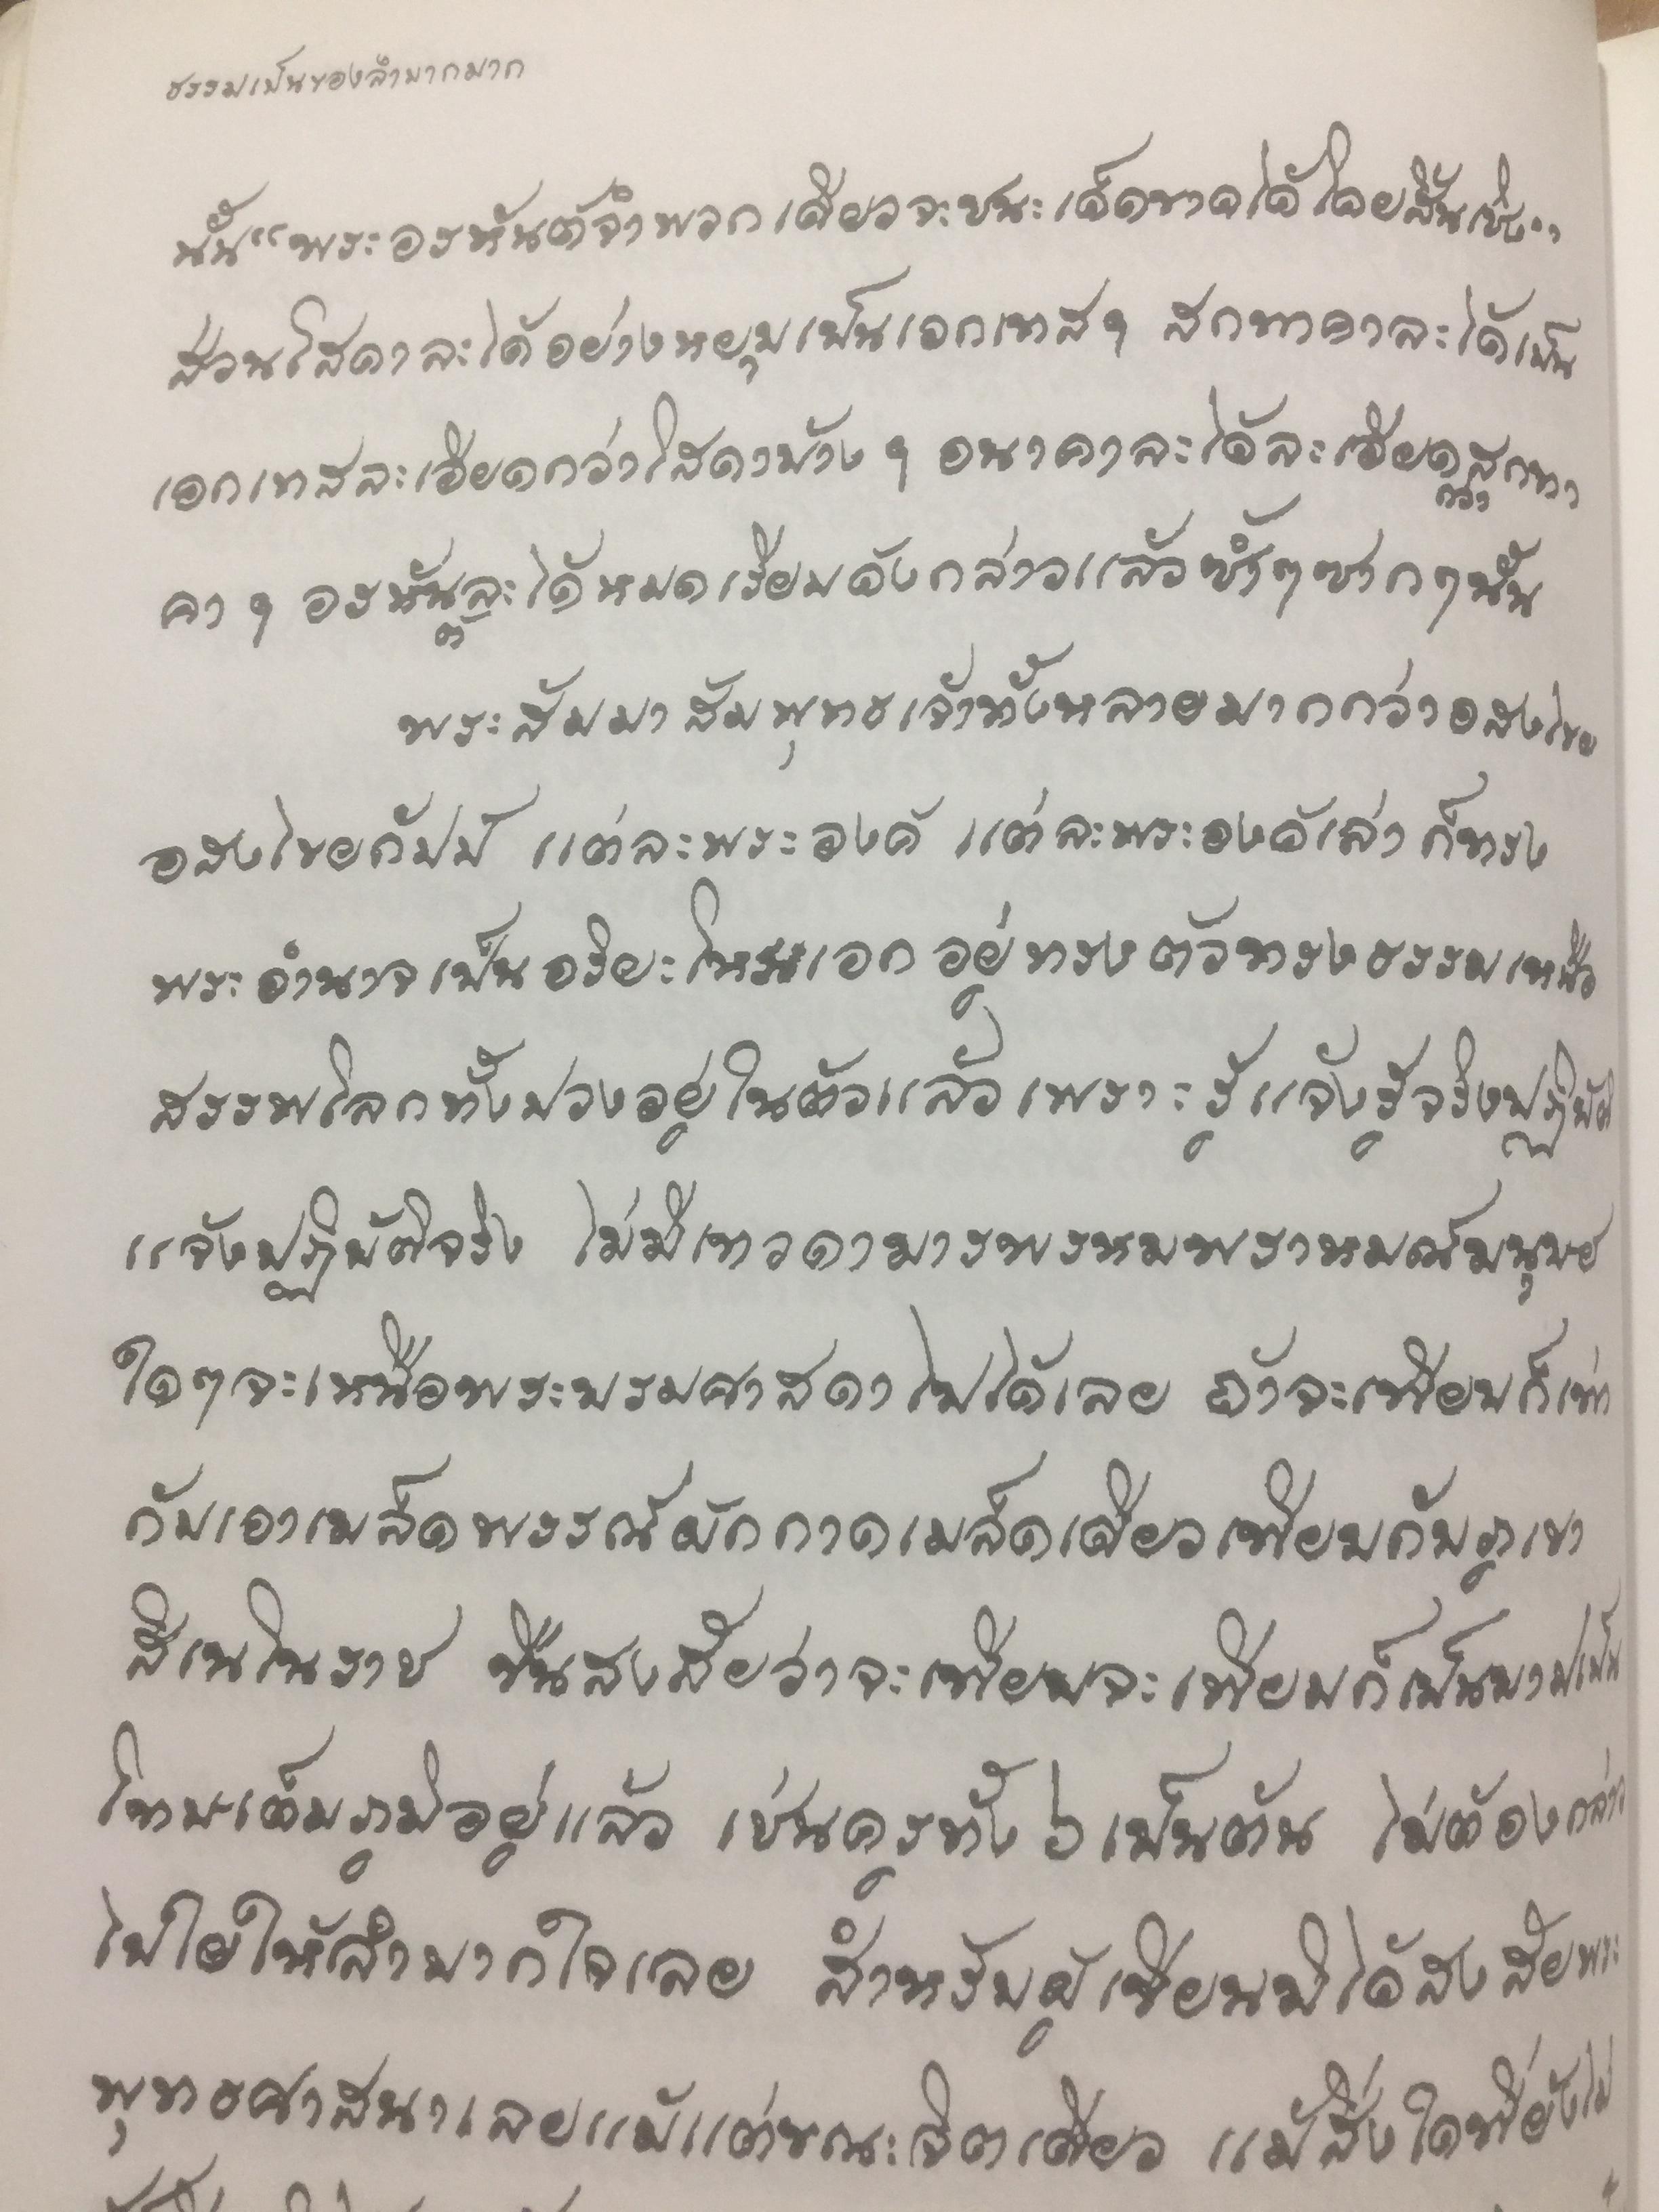 ธรรมเป็นของลำบากมาก
นั้น“พระอรหันต์จำพวกเดียวจะชนะเด็ดขาดได้โดยสิ้นเชิง”
ส่วนโสดาละได้อย่างหยุบเป็นเอกเทสๆ สกทาคาละได้เป็น
เอกเทสละเอียดกว่าโสดาบ้าง ๆ อนาคาละได้ละเอียดกว่าสกทา
คา ๆ อรหันต์ละได้หมดเรียบดังกล่าวแล้วซ้ำๆซากๆนั้น
พระสัมมาสัมพุทธเจ้าทั้งหลายมากกว่าอสงไขย
อสงไขยกัปป์ แต่ละพระองค์ แต่ละพระองค์เล่า ก็ทรง
พระอำนาจเป็นอริยะ เอก อยู่ทรงตัวทรงธรรมเหนือ
สรรพโลกทั้งปวงอยู่ในตัวแล้ว เพราะรู้แจ้งรู้จริงปฏิบัติ
แจ้งปฏิบัติจริง ไม่มีเทวดามารพรหมพราหมณ์มนุษย์
ใดๆจะเหนือพระบรมศาสดาไปได้เลย ถ้าจะเทียบก็เท่า
กับเอาเมล็ดพรรณ์ผักกาดเมล็ดเดียวเทียบกับภูเขา
สิเนโนราช ขืนสงสัยว่าจะเทียบจะเทียมก็เป็นบาปเป็น
โทษเต็มภูมิอยู่แล้ว เช่นครูทั้ง ๖ เป็นต้น ไม่ต้องกล่าว
ไปใยให้ลำบากใจเลย สำหรับผู้เขียนมิได้สงสัยพระ
พุทธศาสนาเลยแม้แต่ขณะจิตเดียว แม้สิ่งใดที่ยังไม่